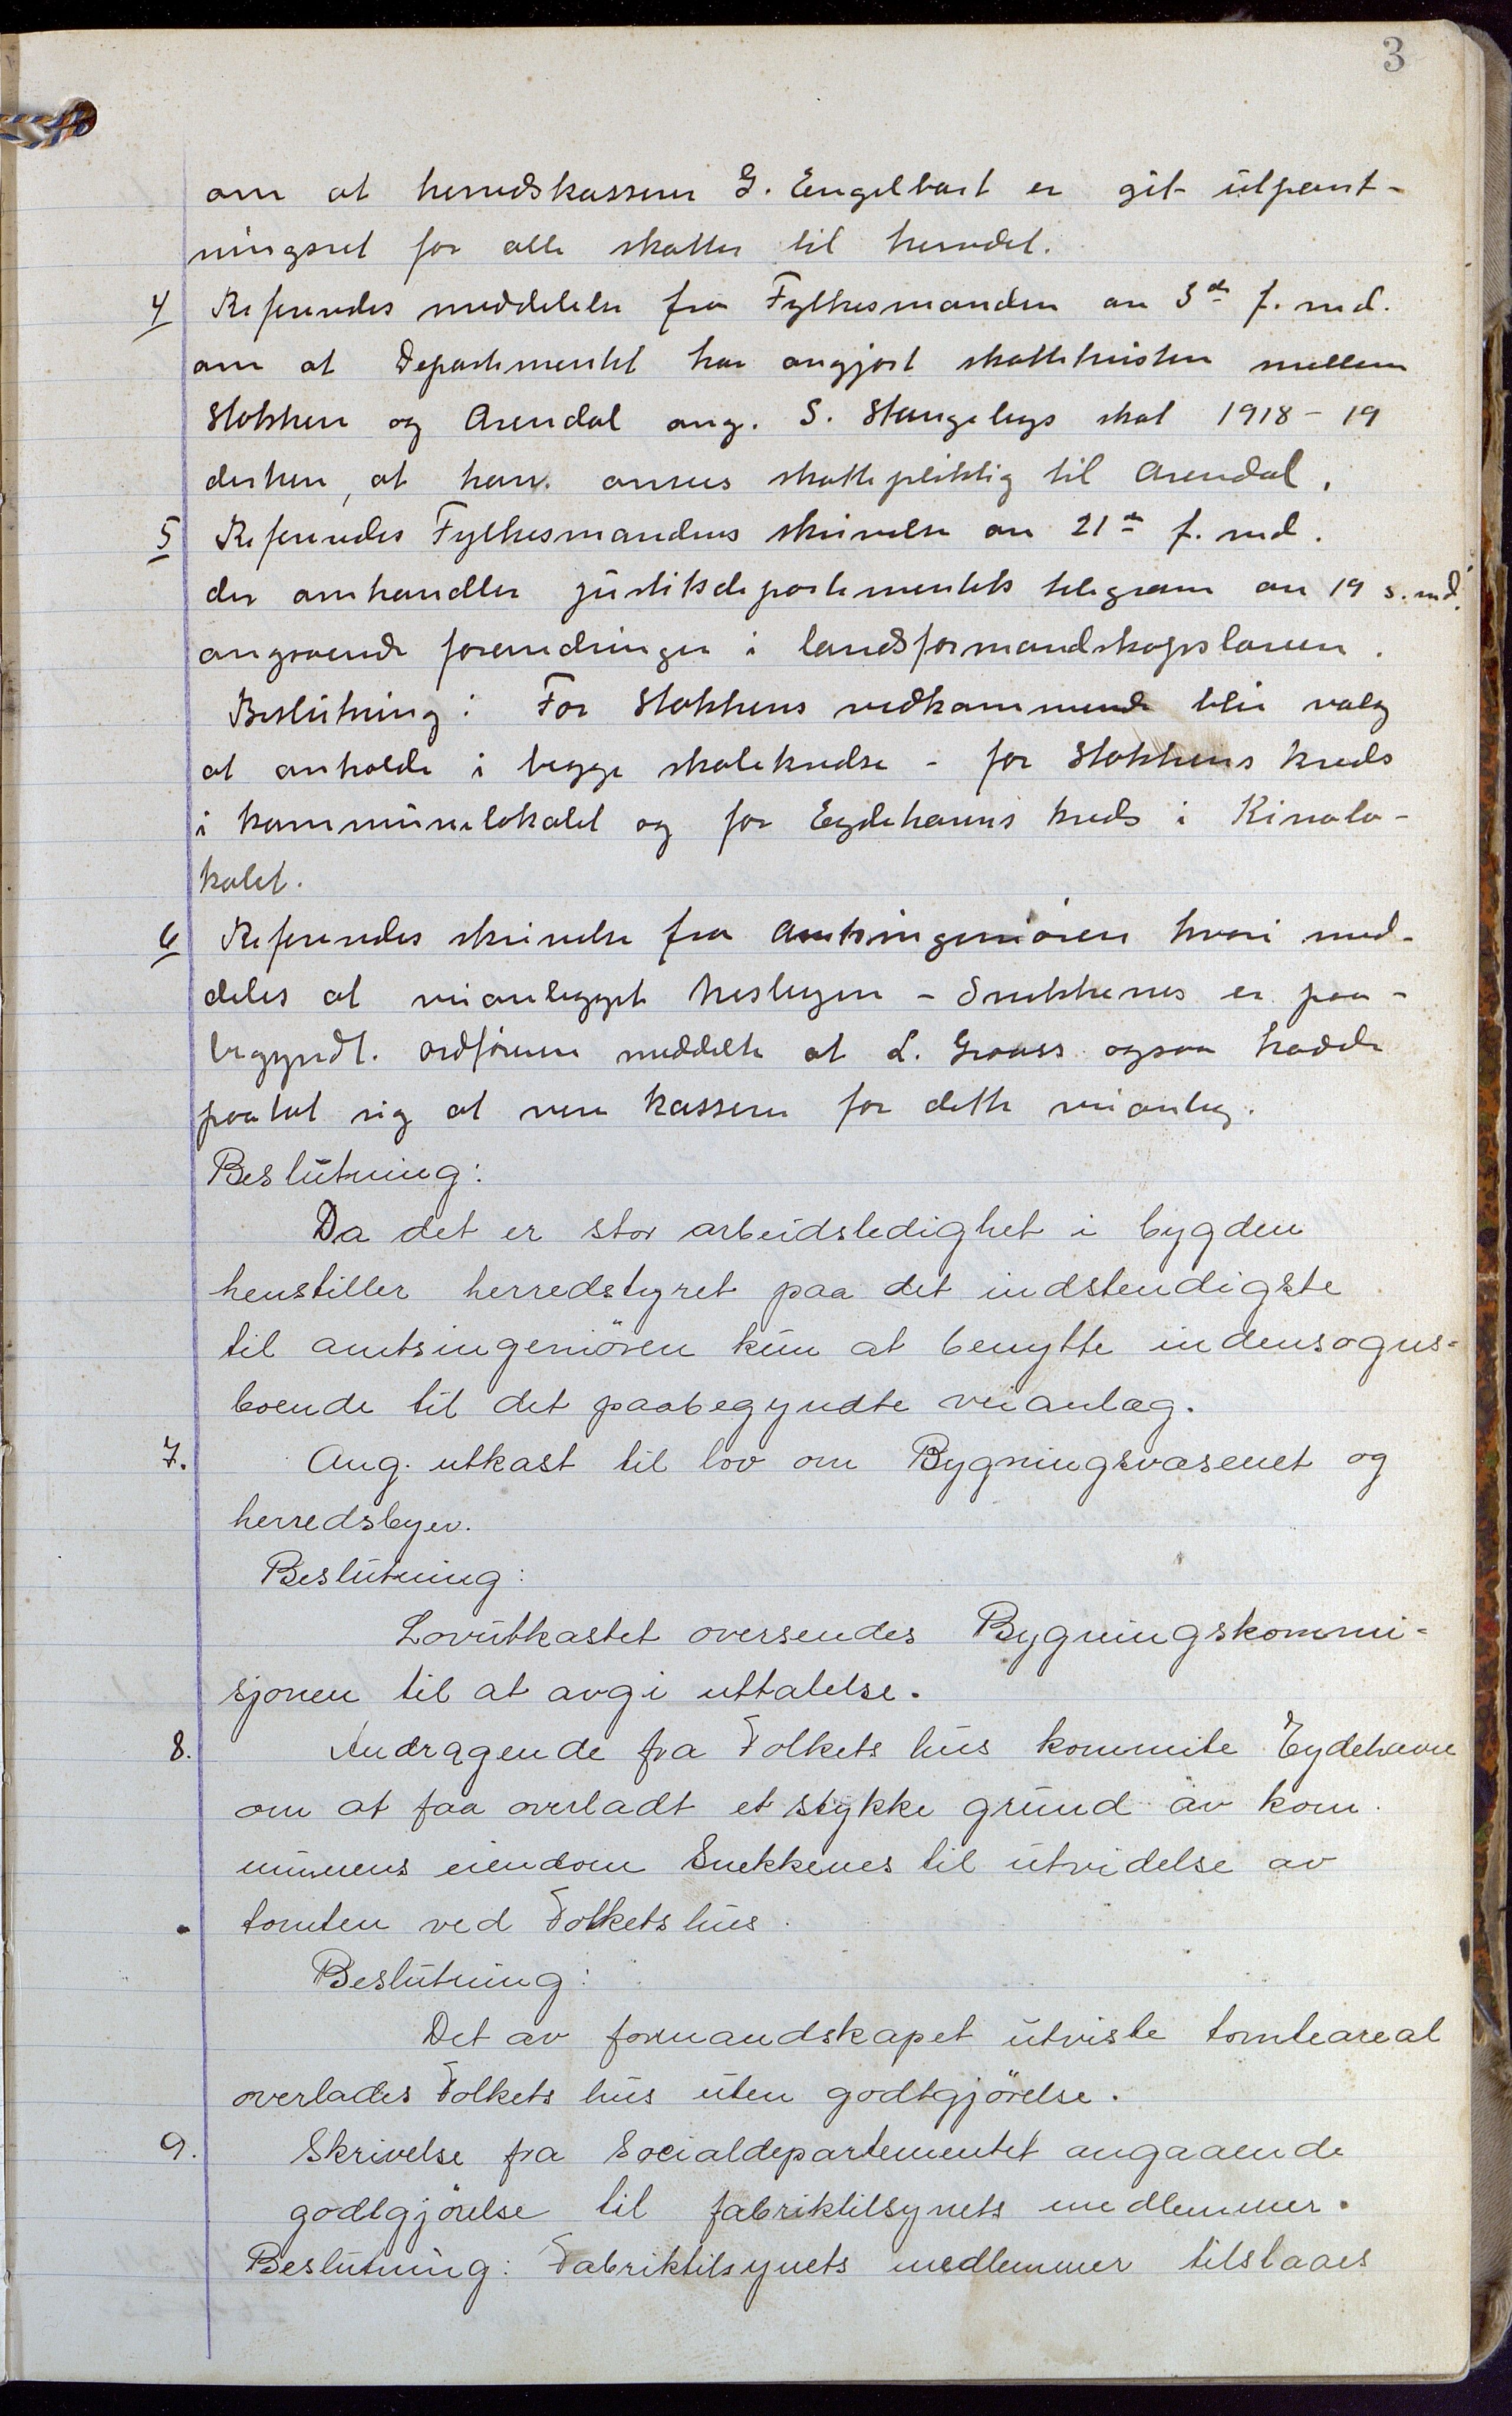 3
om at herredskasserer G. Engelbart er git utpant-
ningsret for alle skatter til herredet.
4 Refereredes meddelelse fra Fylkesmanden av 3de f. md.
om at Departementet har avgjort skattetvisten mellem
Stokken og Arendal ang. S. Stangebyes skat 1918 - 19
derhen, at han ansees skattepliktig til Arendal.
5 Refereredes Fylkesmandens skrivelse av 21de f. md.
der omhandler justitsdepartementets telegram av 19 s. md.
angaaende forandringer i landsformandskapsloven.
Beslutning: For Stokkens vedkommende blir valg
at avholde i begge skolekredse - for Stokkens kreds
i kommunelokalet og for Eydehavns kreds i Kinolo-
kalet.
6 Refereredes skrivelse fra Amtsingeniören hvori med-
deles at veianlegget - Snekkenes er paa-
begyndt. Ordföreren meddelte at L. Graass ogsaa hadde
paatat sig at være kasserer for dette veianleg.
Beslutning:
Da det er stor arbeidsledighet i bygden
henstiller herredstyret paa det indstendigste
til amtsingeniören kun at benytte indensogns-
boende til det paabegyndte veianlæg.
7. Ang. utkast til lov om Bygningsvæsenet og
herredsbyer.
Beslutning:
Lovutkastet oversendes Bygningskommi-
sjonen til at avgi uttalelse.
8. Andragende fra Folkets hus kommite Eydehavn
om at faa overladt et stykke grund av kom-
munens eiendom Snekkenes til utvidelse av
tomten ved Folkets hus.
Beslutning:
Det av formandskapet utviste tomteareal
overlades Folkets hus uten godtgjörelse.
9. Skrivelse fra Socialdepartementet angaaende
godtgjörelse til fabriktilsynets medlemmer.
Beslutning: Fabriktilsynets medlemmer tilstaaes